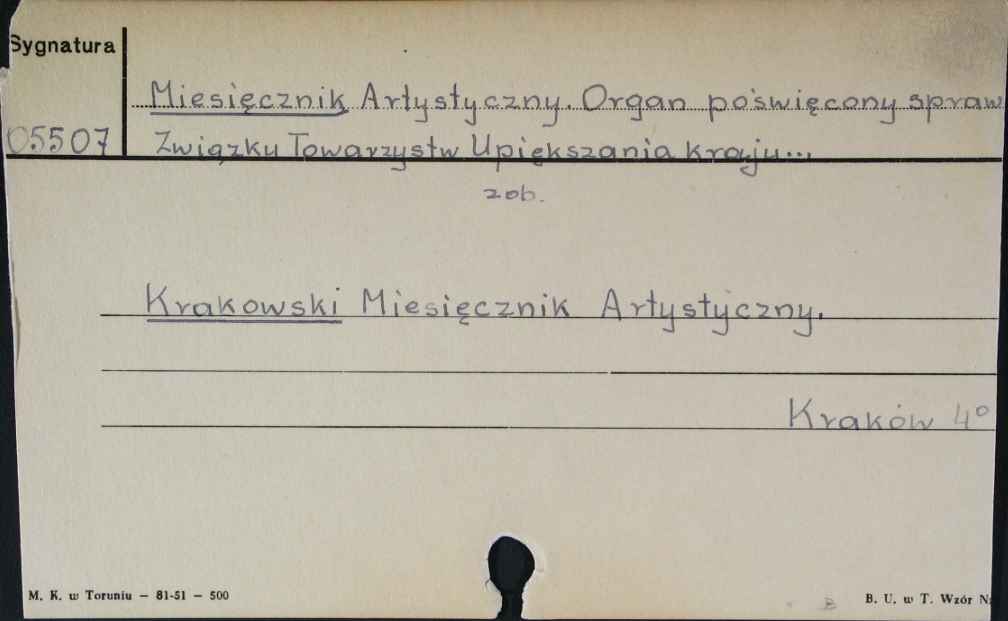 Sygnatura
Miesięcznik Artystyczny. Organ poświęcony spraw
05507 Związku Towarzystw Upiększania kraju...
zob.
Krakowski Miesięcznik Artystyczny.
Kraków 4°
M. K. w Toruniu — 81-51 — 500
B. U. w T. Wzór